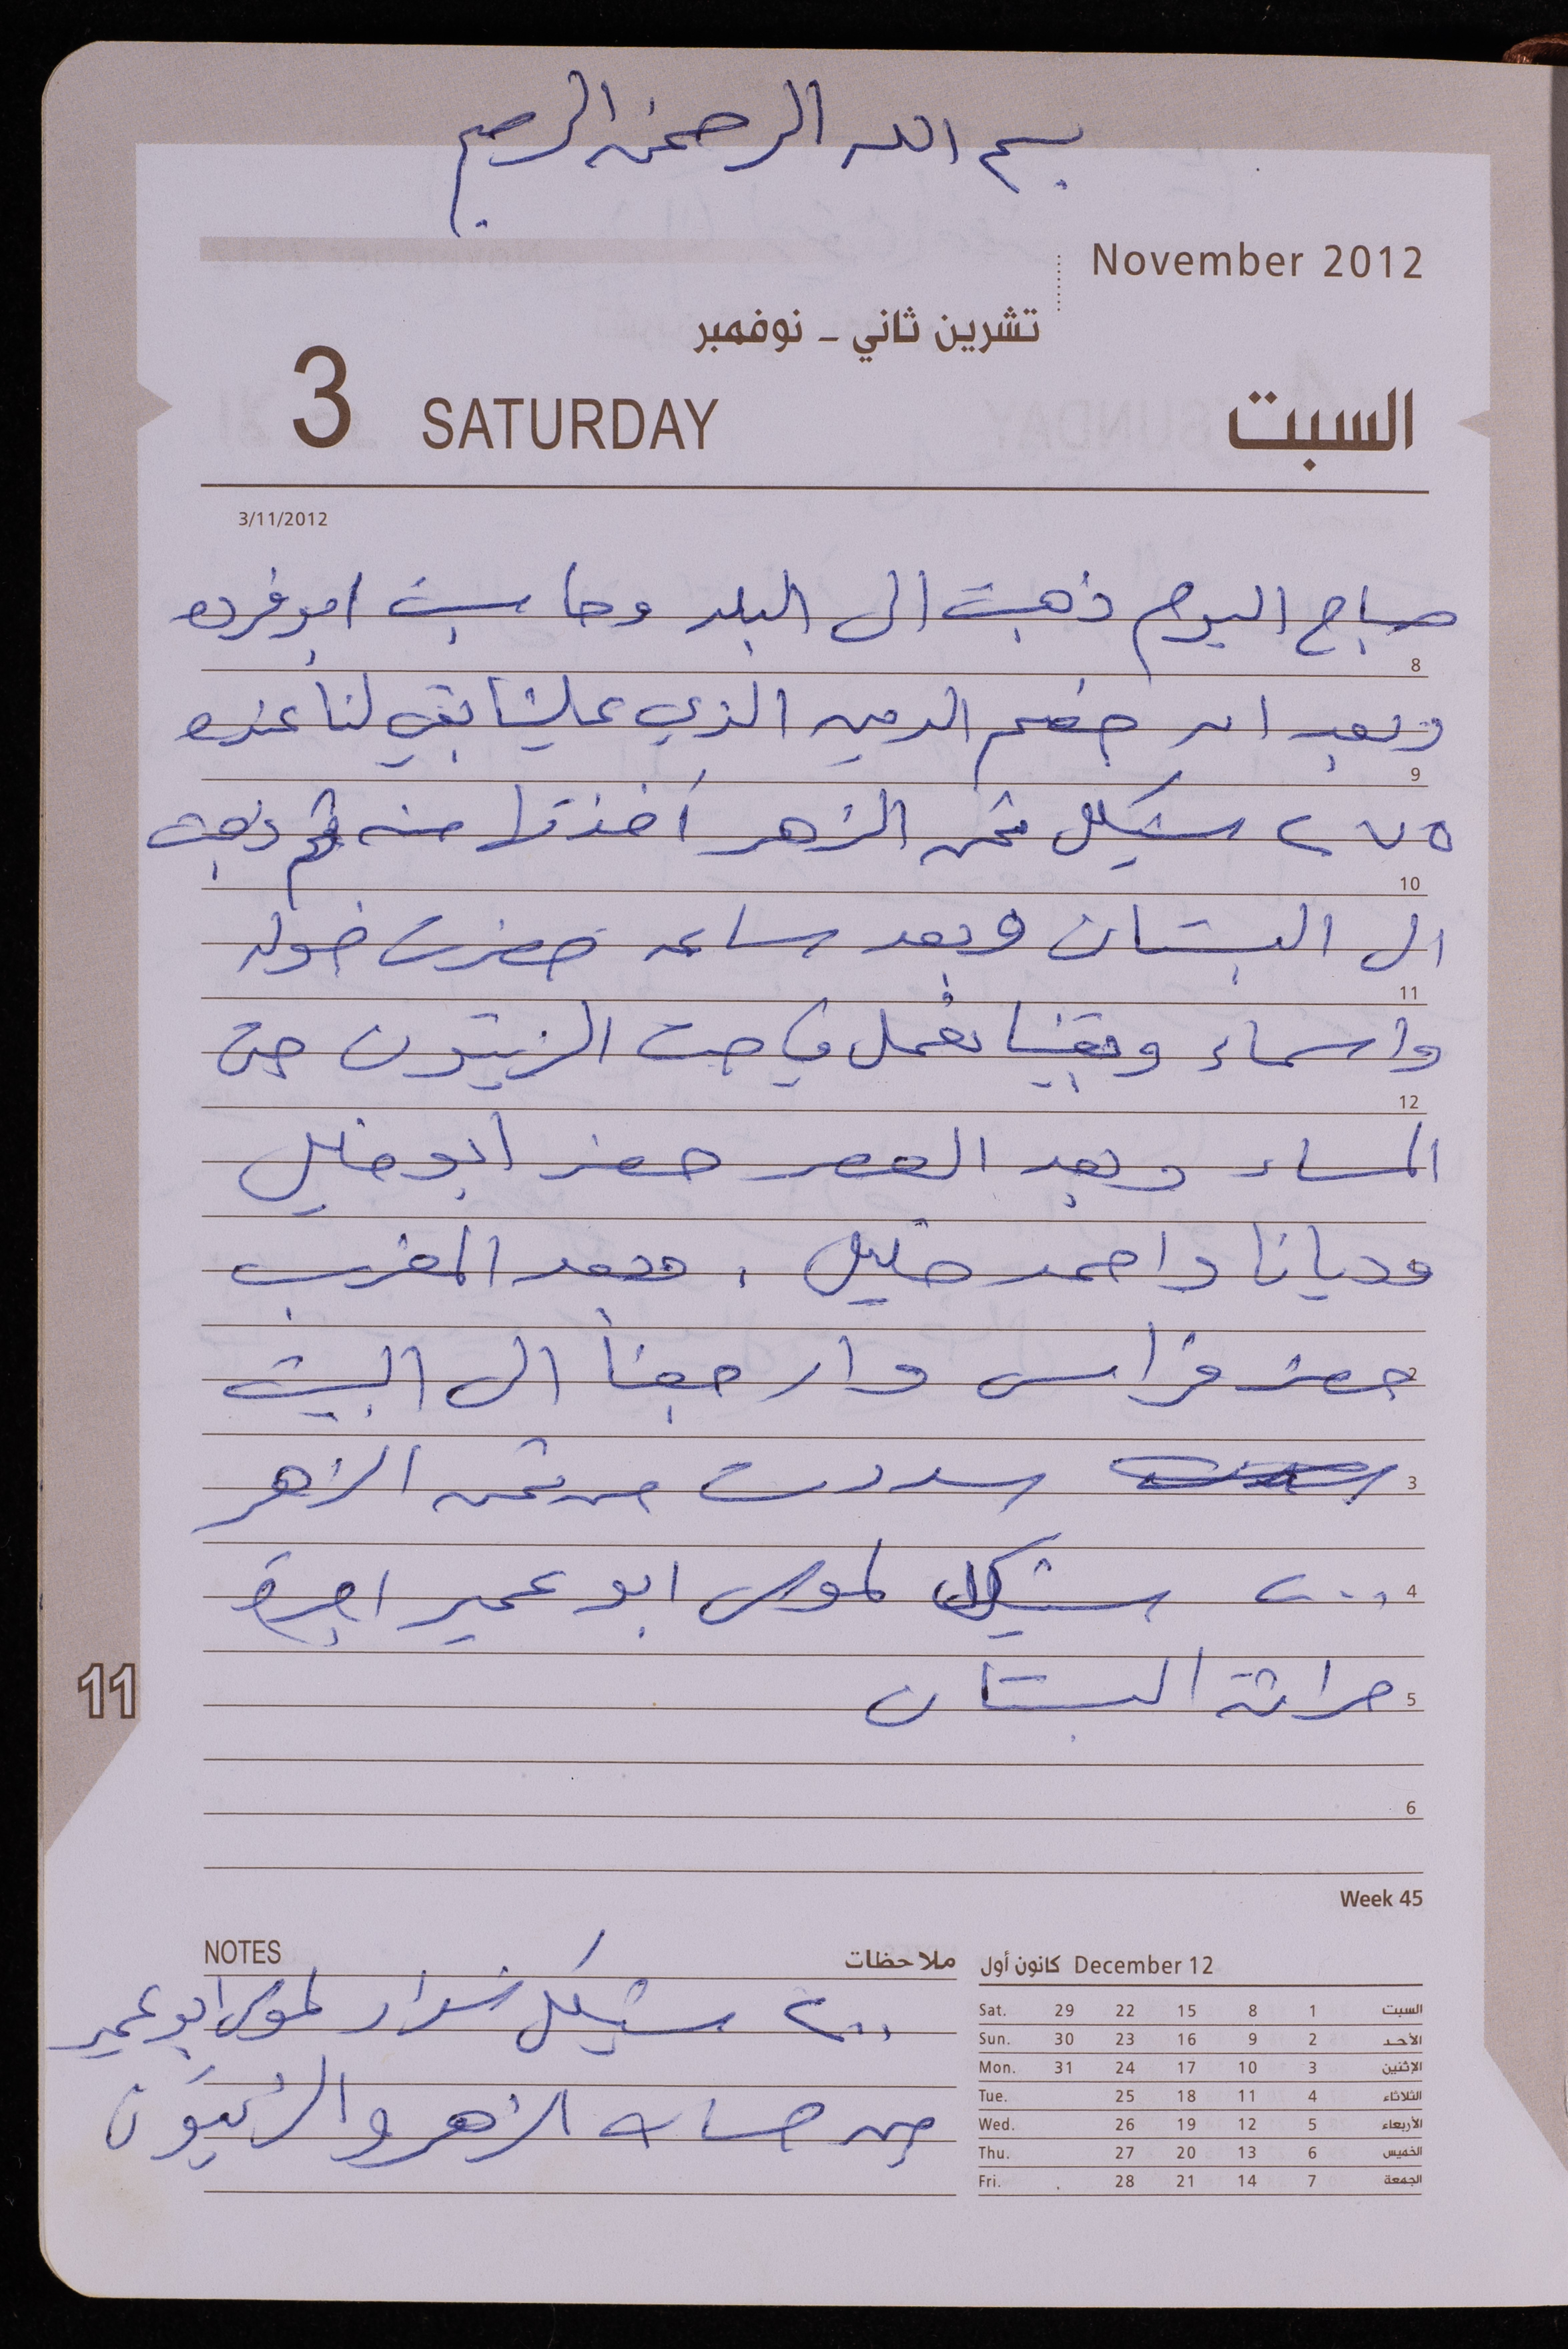 بسم الله الرحمن الرحيم
November 2012
تشرين ثاني – نوفمبر
3 SATURDAY السبت
3/11/2012
صباح اليوم ذهبت الى البلد وحاسبت ابو فرده
8
وبعد ان خصم الدين الذي علينا بقي لنا عنده
9
٢٧٥ شيكل ثمن الزهر أخذتها منه ثم ذهبت
10
الى البستان وبعد ساعه حضرت خوله
11
واسماء وبقينا نعمل في جت الزيتون حتى
12
المساء وبعد العصر حضر ابو خليل
وديانا واحمد خليل ، وبعد المغرب
حضر فراس وارجعنا الى البيت
2
سددت من ثمن الزهر
3
٢٠٠ شيكل لموسى ابو عمير اجرة
4
حراثة البستان
5
11
6
Week 45
NOTES ملاحظات
٢٠٠ شيكل سداد لموسى ابو عمير
من حساب الزهر والزيتون
كانون أول December 12
Sat. 29 22 15 8 1 السبت
Sun. 30 23 16 9 2 الأحد
Mon. 31 24 17 10 3 الإثنين
Tue. 25 18 11 4 الثلاثاء
Wed. 26 19 12 5 الأربعاء
Thu. 27 20 13 6 الخميس
Fri. 28 21 14 7 الجمعة